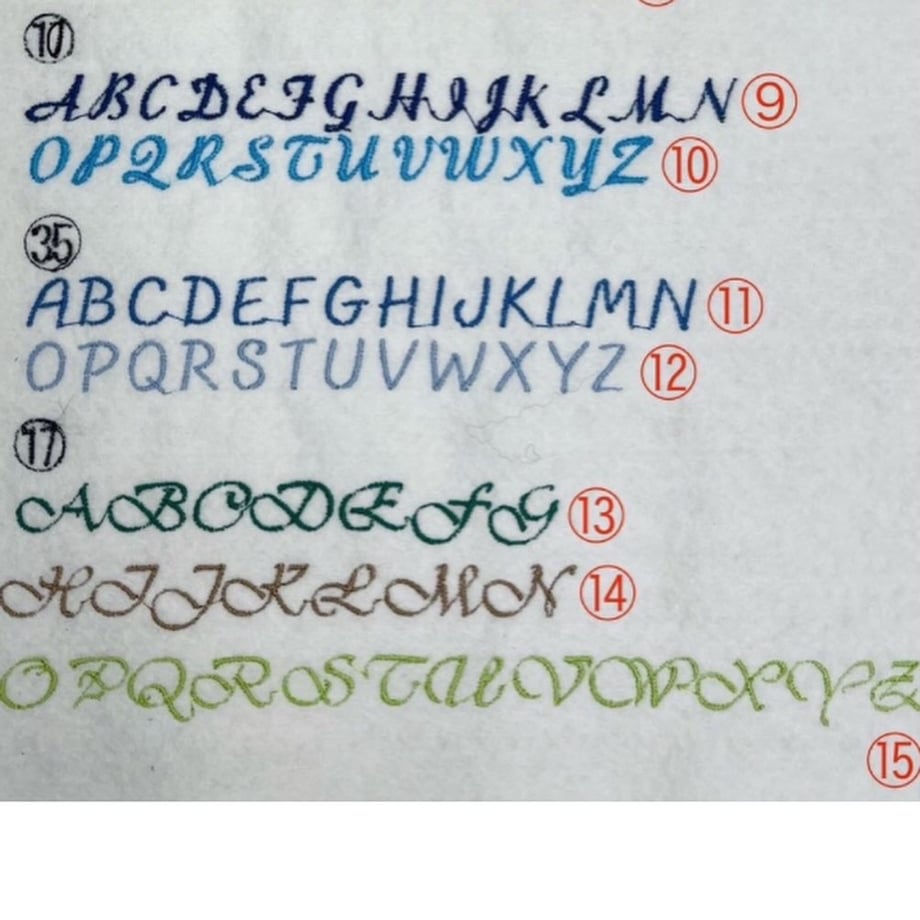 ⑩
ABCDEFGHIJKLMN ⑨
OPQRSTUVWXYZ ⑩
㉟
ABCDEFGHIJKLMN ⑪
OPQRSTUVWXYZ ⑫
⑰
ABCDEFG ⑬
HIJKLMN ⑭
OPQRSTUVWXYZ
⑮